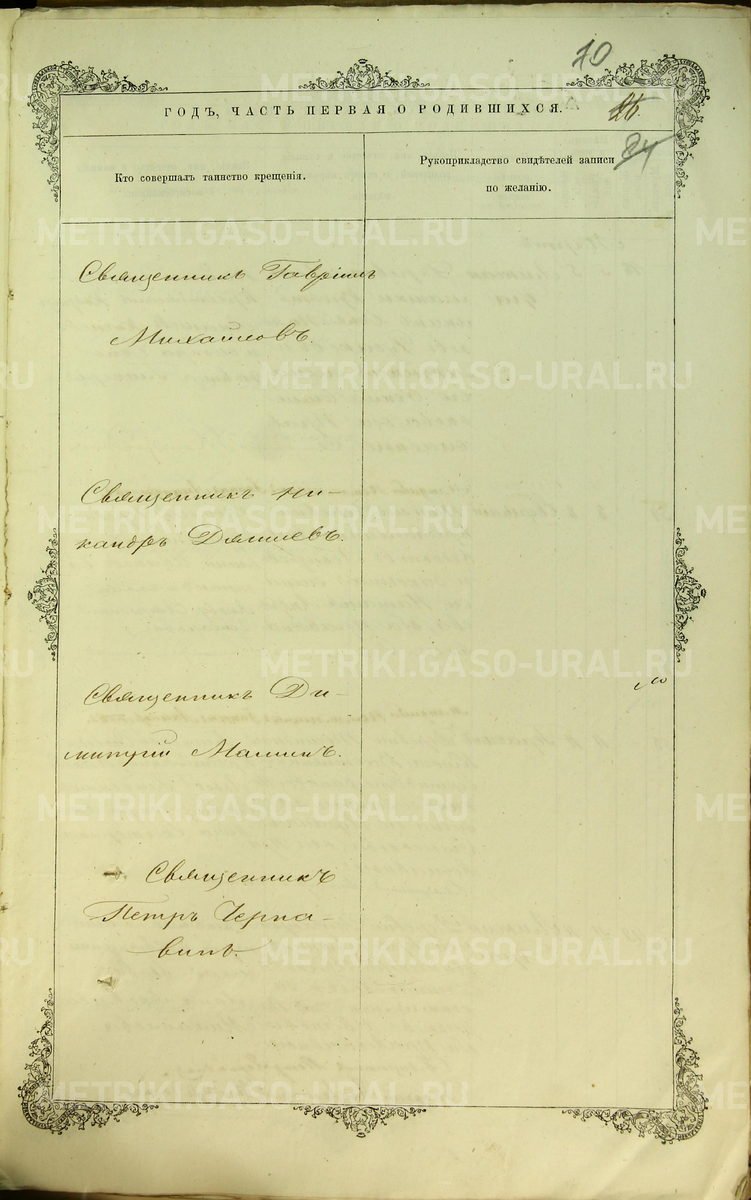 10
ГОДЪ, ЧАСТЬ ПЕРВАЯ О РОДИВШИХСЯ.
84
Кто совершалъ таинство крещенія.
Рукоприкладство свидѣтелей записи
по желанію.
Священникъ Гавріилъ
Михайловъ.
Священникъ Ни-
кандръ
Священникъ Ди-
митрій Малинъ.
Священникъ
Петръ Черна-
винъ.
METRIKI.GASO-URAL.RU